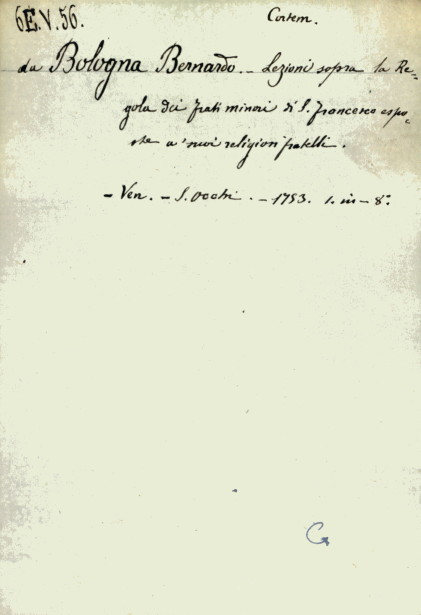 6E.V.56.
Cortem.
da Bologna Bernardo. - Lezioni sopra la Re-
gola dei frati minori di S. Francesco espo-
ste a' suoi religiosi fratelli.
- Ven. - S. Occhi. - 1753. 1. in - 8°